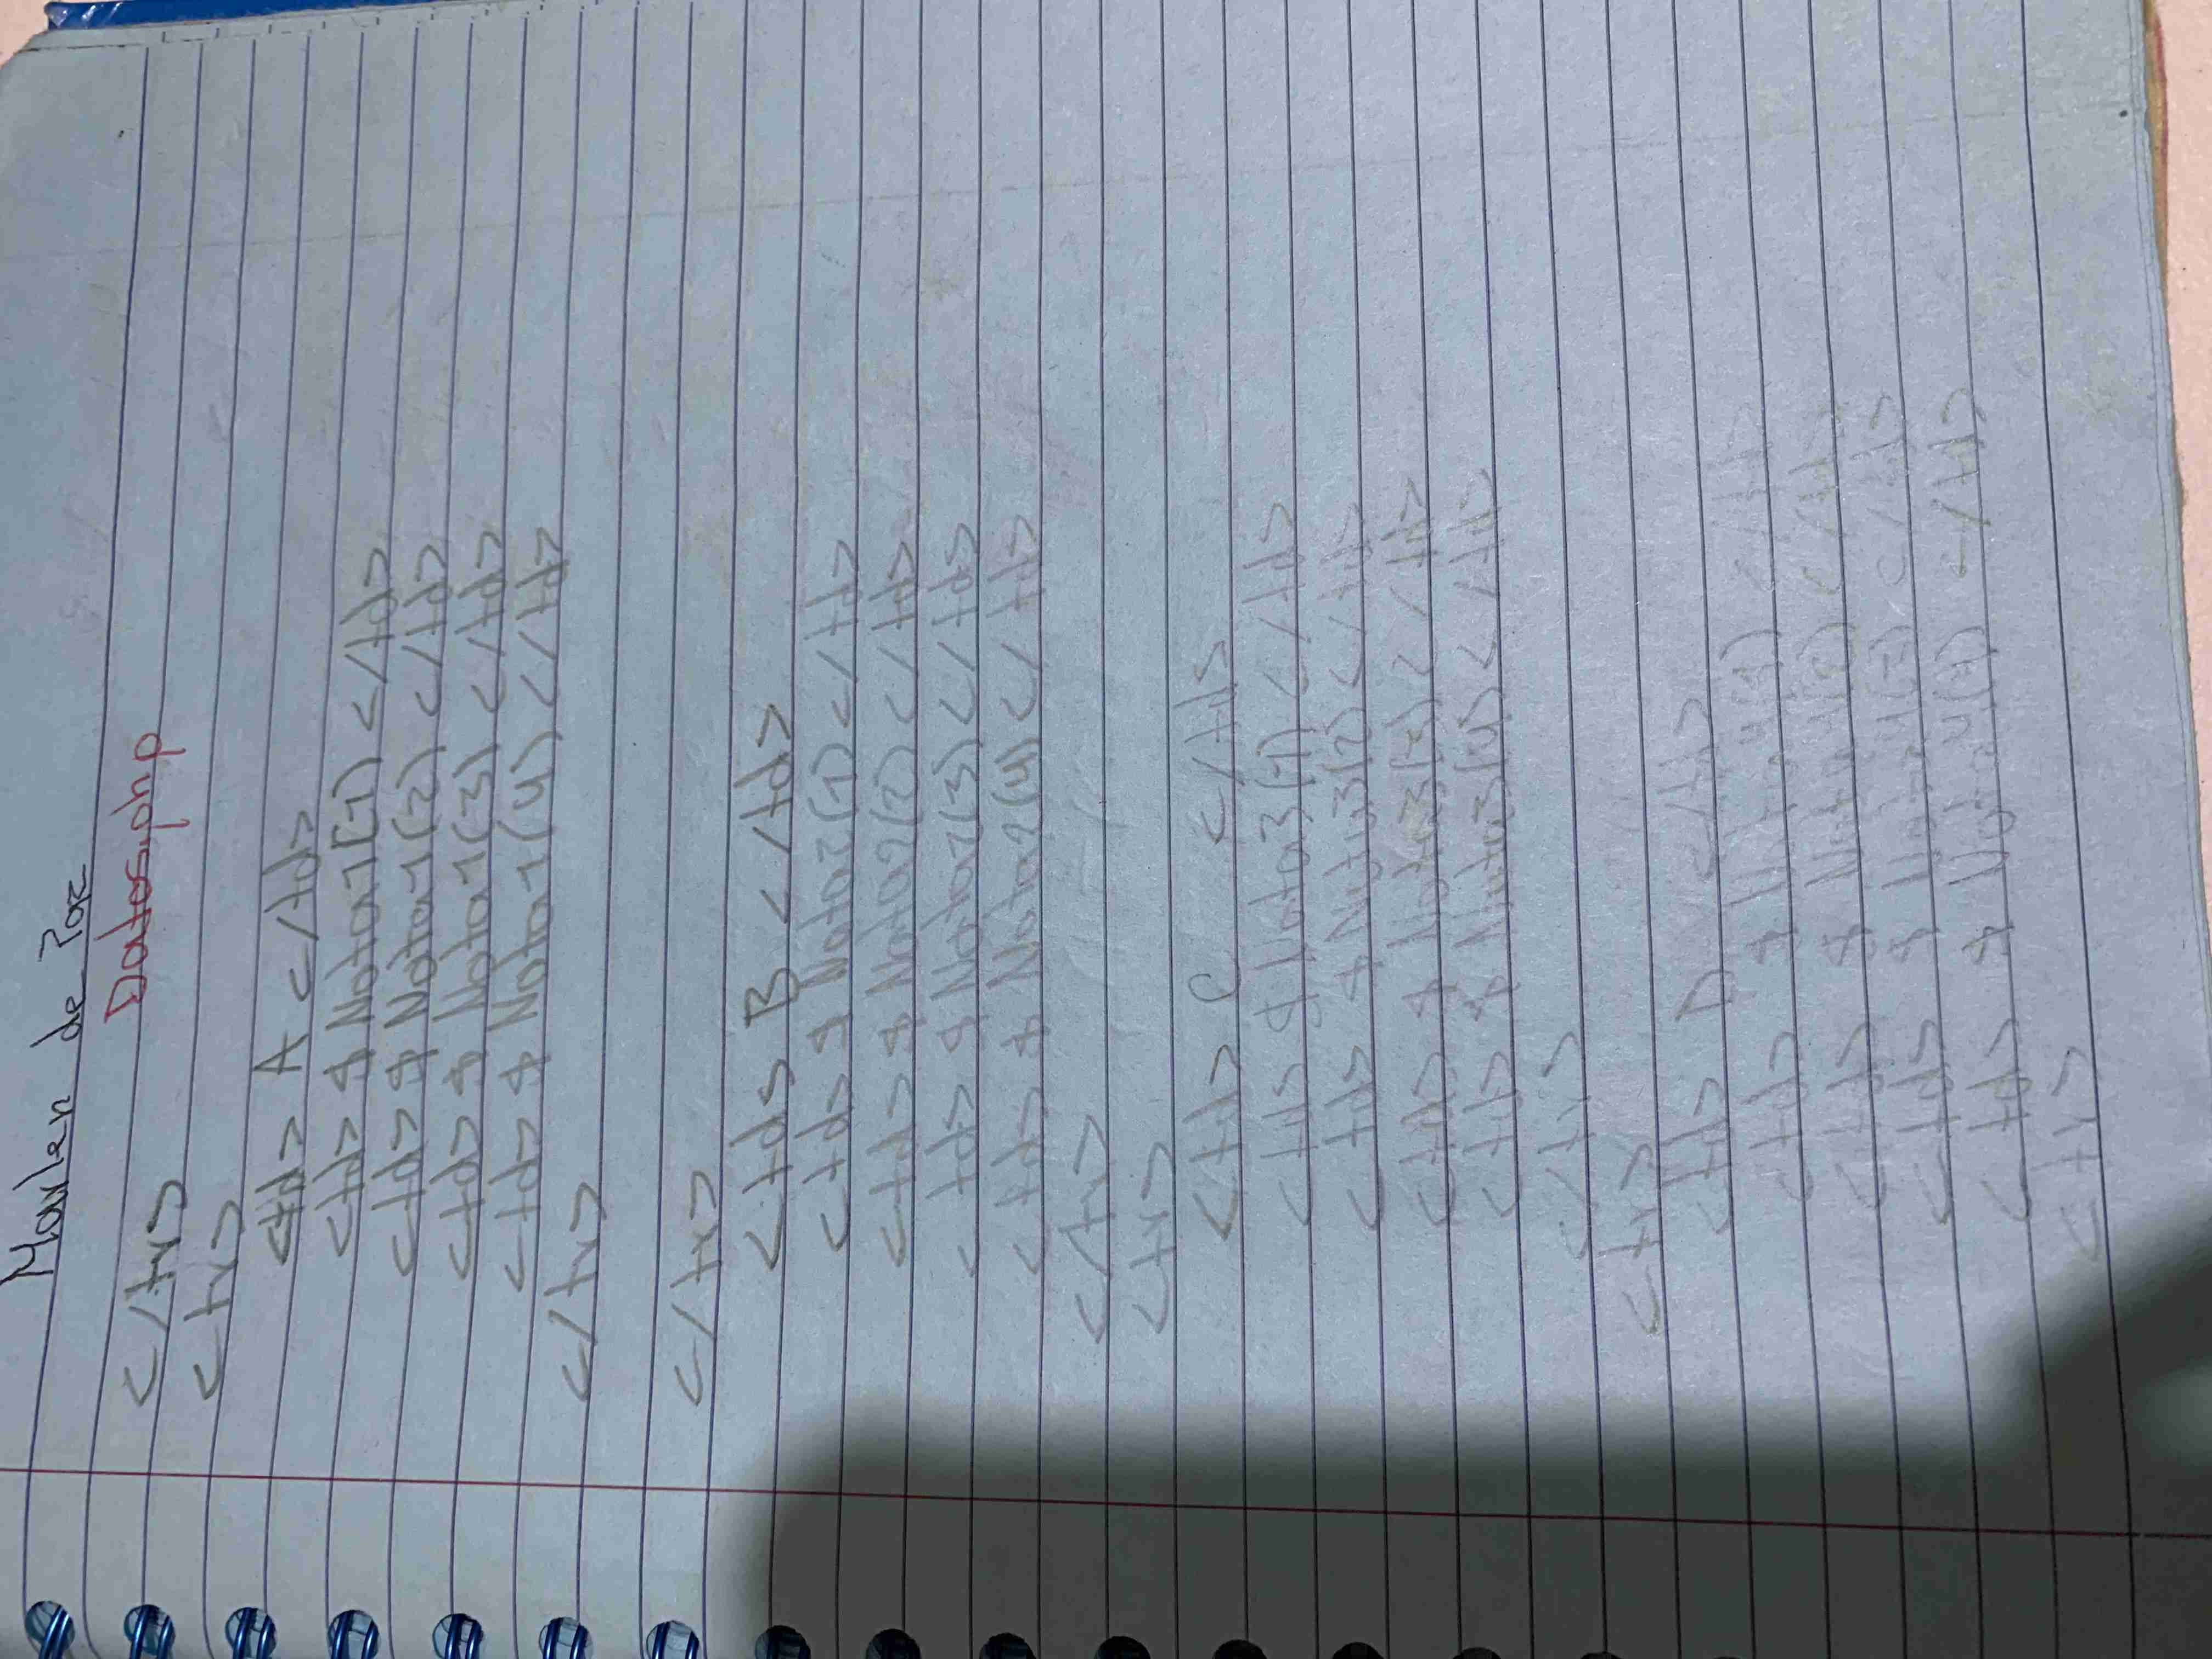 Marlen de Paz
Datos.php
</tr>
<tr>
<td> A </td>
<td> $ Nota1(1) </td>
<td> $ Nota1(2) </td>
<td> $ Nota1(3) </td>
<td> $ Nota1(4) </td>
</tr>
</tr>
<td> B </td>
<td> $ Nota2(1) </td>
<td> $ Nota2(2) </td>
<td> $ Nota2(3) </td>
<td> $ Nota2(4) </td>
</tr>
<tr>
<td> C </td>
<td> $ Nota3(1) </td>
<td> $ Nota3(2) </td>
<td> $ Nota3(3) </td>
<td> $ Nota3(4) </td>
</tr>
<tr>
<td> D </td>
<td> $ Nota4(1) </td>
<td> $ Nota4(2) </td>
<td> $ Nota4(3) </td>
<td> $ Nota4( </td>
<tr>